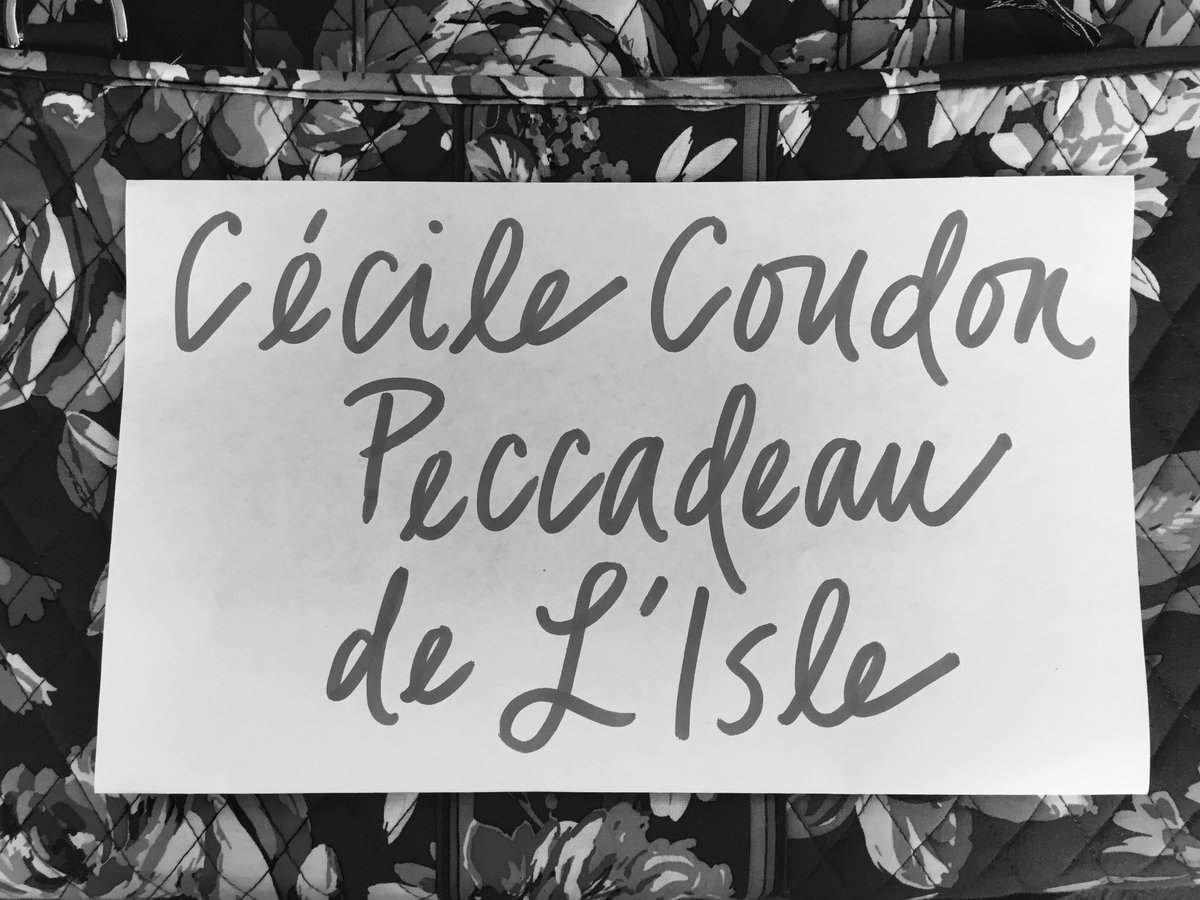 Cécile Coudon
Peccadeau
de L'Isle